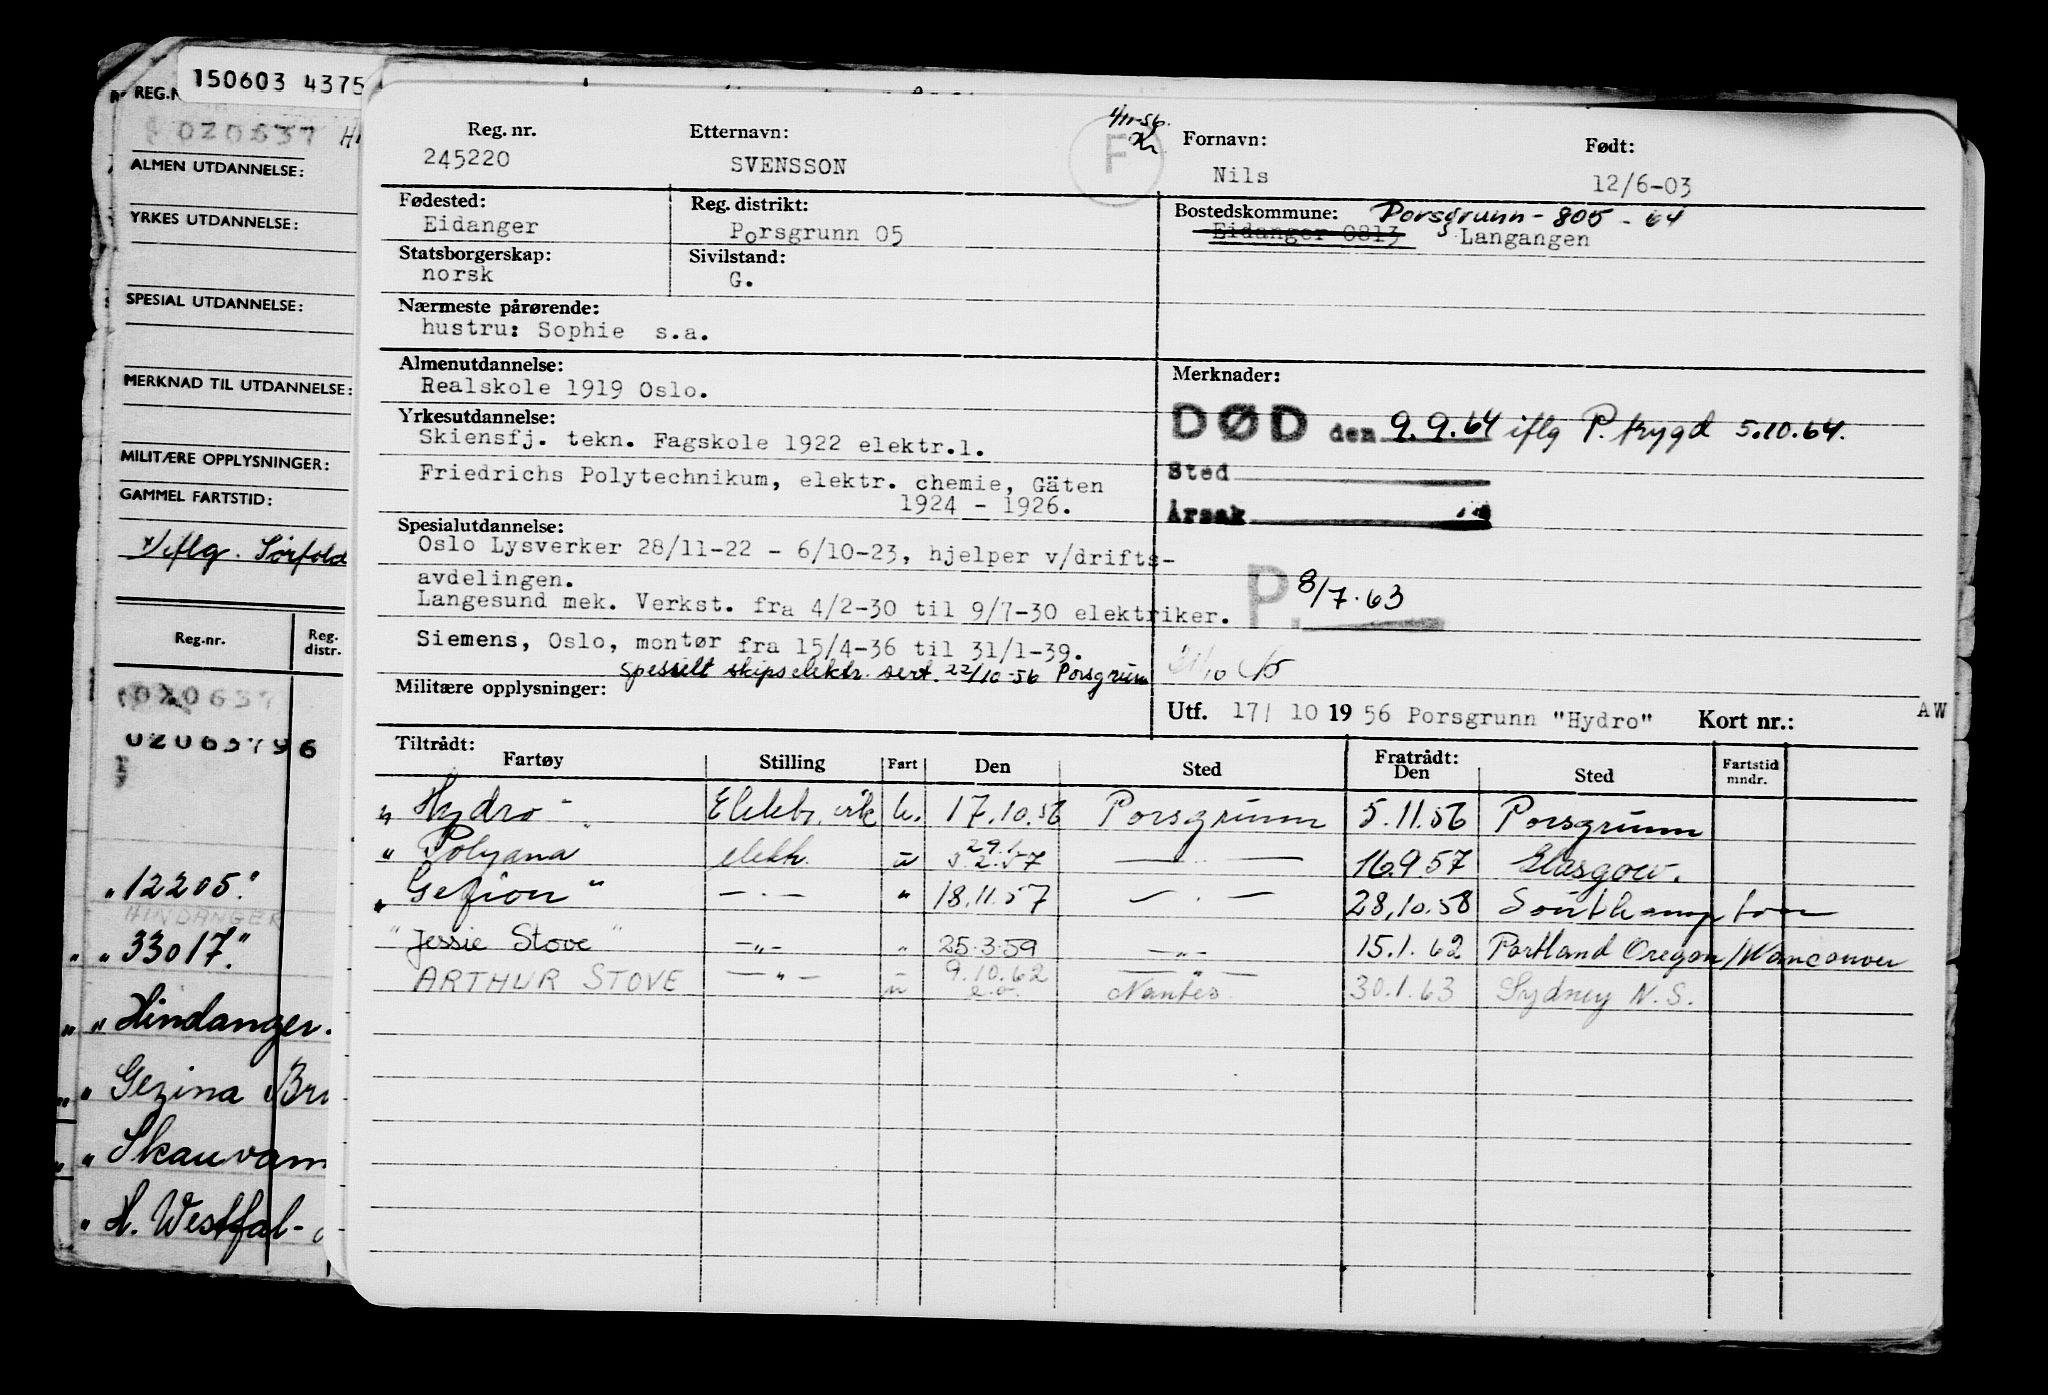 150603 4375
REG.N
020637
ALMEN UTDANNELSE:
YRKES UTDANNELSE:
SPESIAL UTDANNELSE:
MERKNAD TIL UTDANNELSE:
MILITÆRE OPPLYSNINGER:
GAMMEL FARTSTID:
iflg. Sørfold
Reg.nr. Reg. distr.
020637
"12205."
HINDANGER
" " 33017."
" " Hindanger.
" " Gezina Br
" " Skauvam
" H. Westfal-
Reg. nr. Etternavn: F Fornavn: Født:
245220 SVENSSON Nils 12/6-03
Fødested: Reg. distrikt: Bostedskommune: Porsgrunn - 805 - 64
Eidanger Porsgrunn 05 Eidanger 0813 Langangen
Statsborgerskap: Sivilstand:
norsk G.
Nærmeste pårørende:
hustru: Sophie s.a.
Almenutdannelse: Merknader:
Realskole 1919 Oslo.
Yrkesutdannelse: DØD den 9.9.64 iflg P. trygd 5.10.64.
Skiensfj. tekn. Fagskole 1922 elektr.l.
Sted
Friedrichs Polytechnikum, elektr. chemie, Gäten
1924 - 1926.
Årsak
Spesialutdannelse:
Oslo Lysverker 28/11-22 - 6/10-23, hjelper v/drifts-
avdelingen.
P. 8/7.63
Langesund mek. Verkst. fra 4/2-30 til 9/7-30 elektriker.
Siemens, Oslo, montør fra 15/4-36 til 31/1-39.
Spesielt skipselektr. sert. 22/10-56 Porsgrunn
Militære opplysninger:
Utf. 17/ 10 19 56 Porsgrunn "Hydro" Kort nr.: AW
Tiltrådt: Fratrådt:
Fartøy Stilling Fart Den Sted Den Sted Fartstid mndr.
" Hydro " Elektr. vik u. 17.10.56 Porsgrunn 5.11.56 Porsgrunn
" Polyana " elektr. u 29.1. 3.2.57 — " — 16.9.57 Glasgow.
" Gefion " — " — " 18.11.57 — " — 28.10.58 Southampton
" Jessie Stove " — " — " 25.3.59 — " — 15.1.62 Portland Oregon/Vancouver
ARTHUR STOVE — " — u 9.10.62 Nantes 30.1.63 Sydney N.S.